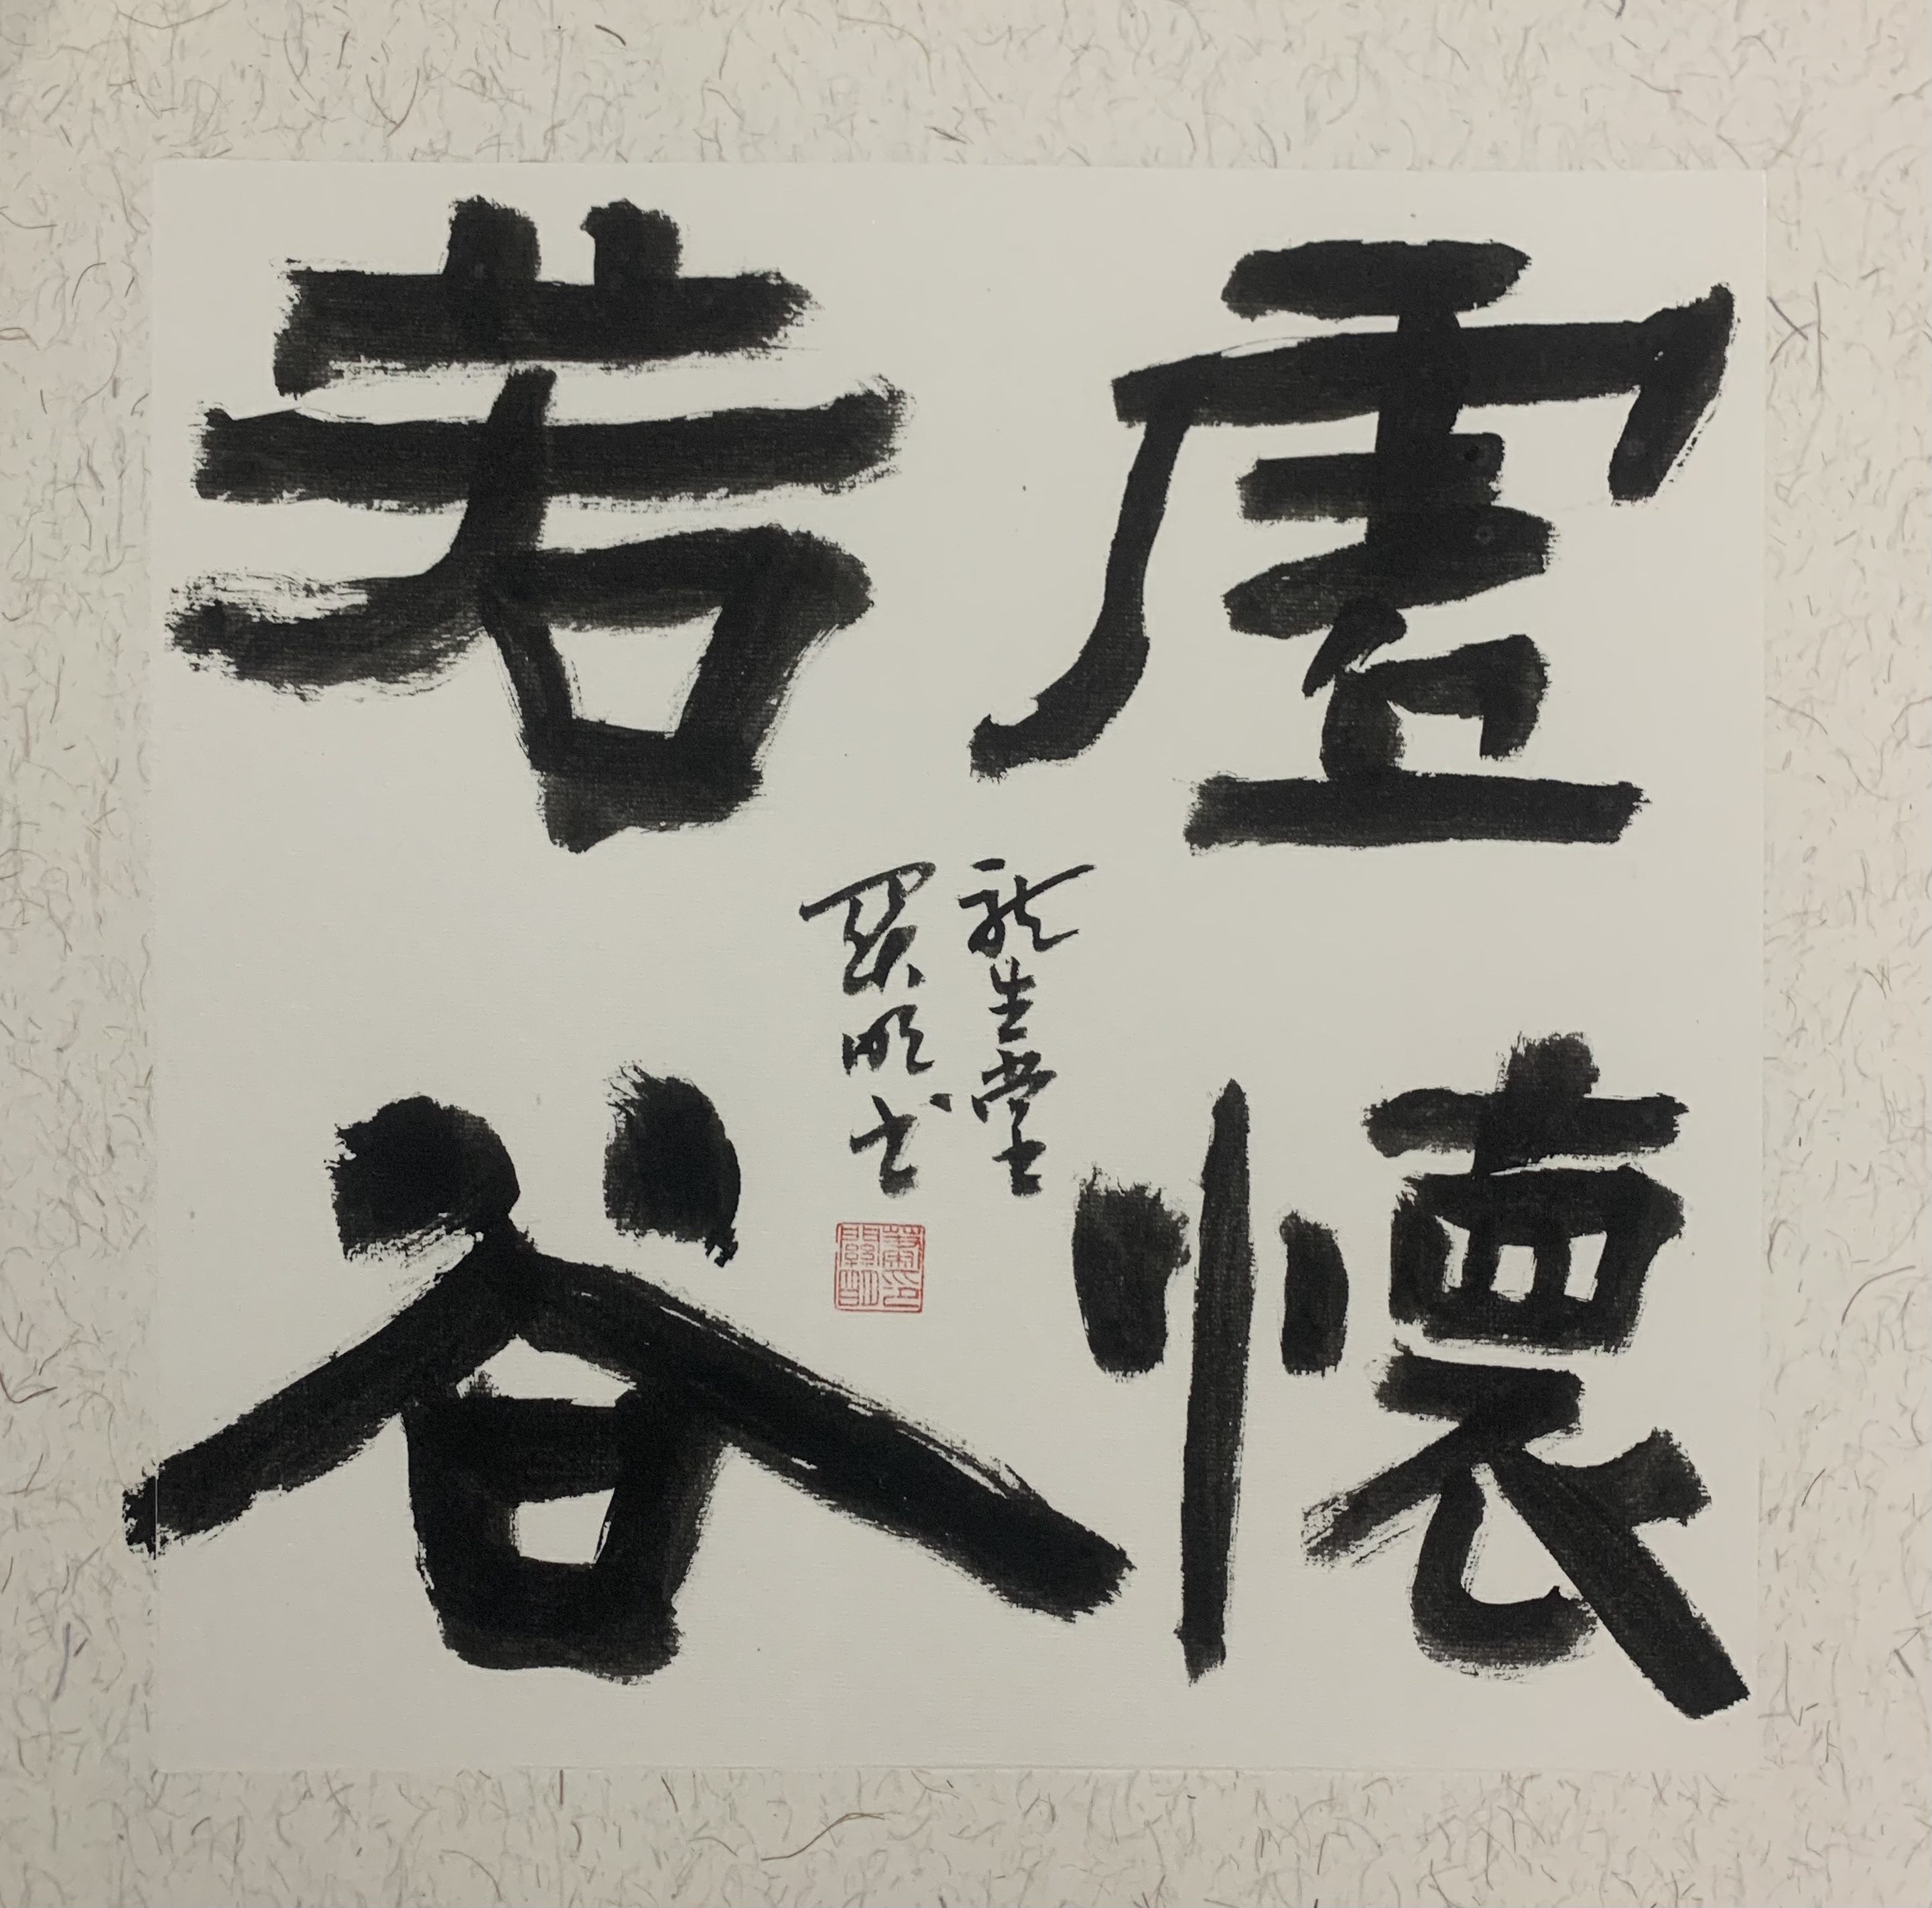 虛懷
若谷
龍生堂主
關明书